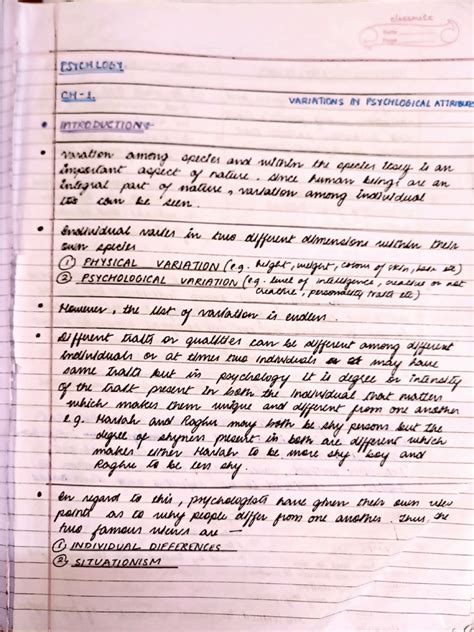 classmate
Date
Page
PSYCHLOGY
CH-1.
VARIATIONS IN PSYCHLOGICAL ATTRIBUTES
• INTRODUCTION:-
• Varation among species and within the species itself is an
important aspect of nature. Since human beings are an
integral part of nature, variation among individual
can be seen.
• Individual varies in two different dimensions within their
own species
① PHYSICAL VARIATION (e.g. height, weight, colour of skin, hair etc)
② PSYCHOLOGICAL VARIATION (e.g. level of intelligence, creative or not
creative, personality traits etc)
• However, the list of variation is endless.
• Different traits or qualities can be different among different
individuals or at times two individuals may have
same traits but in psychology it is degree or intensity
of the trait present in both the individual that matters
which makes them unique and different from one another
e.g. Harsah and Raghu may both be shy persons but the
degree of shyness present in both are different which
makes either Harsah to be more shy boy and
Raghu to be less shy.
• In regard to this, psychologists have given their own view
points as to why people differ from one another. Thus the
two famous views are –
① INDIVIDUAL DIFFERENCES
② SITUATIONISM